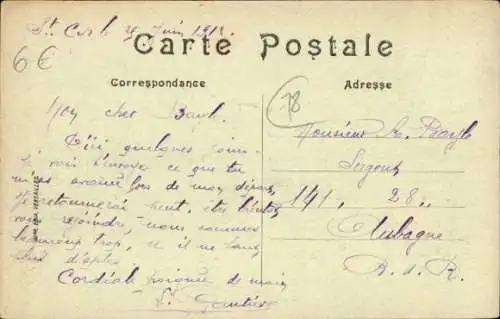 St Cyr le Juin 1912
6€
Carte Postale
Correspondance
Adresse
78
Mon cher
D'ici quelques
Je vais t'envoyer ce que tu
m'as avancé lors de mon départ
Je retournerai peut être bientôt
vous rejoindre, nous sommes
beaucoup trop, et il ne faut
plus d'après
Cordiale poignée de main
Gautier
Monsieur
Sergent
141. 28..
Aubagne
B. d. R.